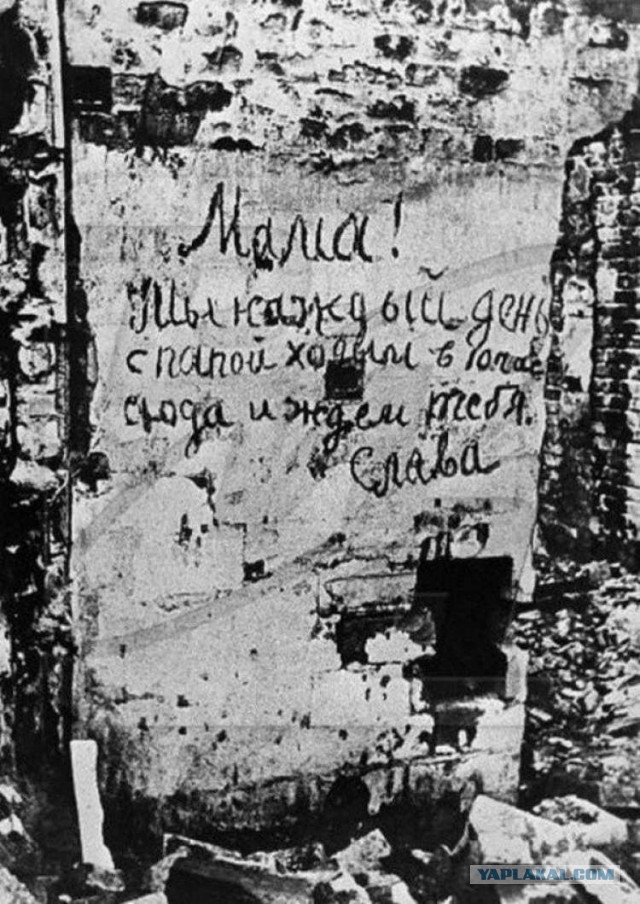 Мама!
Мы каждый день
с папой ходим в 10 час
сюда и ждем тебя.
Слава
YAPLAKAL.COM